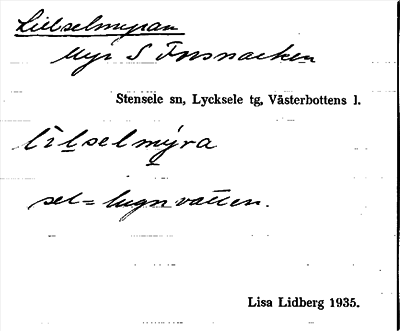 Lillselmyran
Myr S Forsnacken
Stensele sn, Lycksele tg, Västerbottens l.
lìlselmýra
sel = lugnvatten.
Lisa Lidberg 1935.